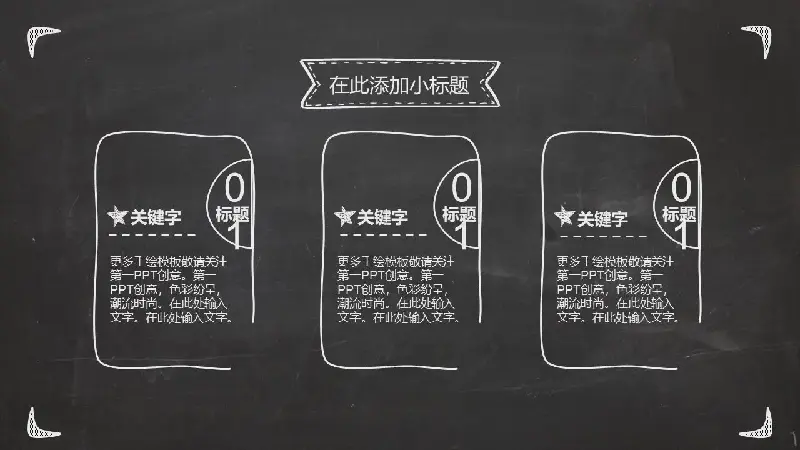 在此添加小标题
0
标题
1
关键字
更多手绘模板敬请关注
第一PPT创意。第一
PPT创意，色彩纷呈，
潮流时尚。在此处输入
文字。在此处输入文字。
0
标题
1
关键字
更多手绘模板敬请关注
第一PPT创意。第一
PPT创意，色彩纷呈，
潮流时尚。在此处输入
文字。在此处输入文字。
0
标题
1
关键字
更多手绘模板敬请关注
第一PPT创意。第一
PPT创意，色彩纷呈，
潮流时尚。在此处输入
文字。在此处输入文字。